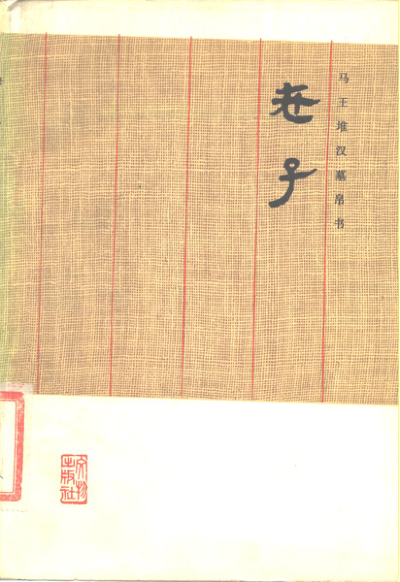 马王堆汉墓帛书
老子
文物
出版社